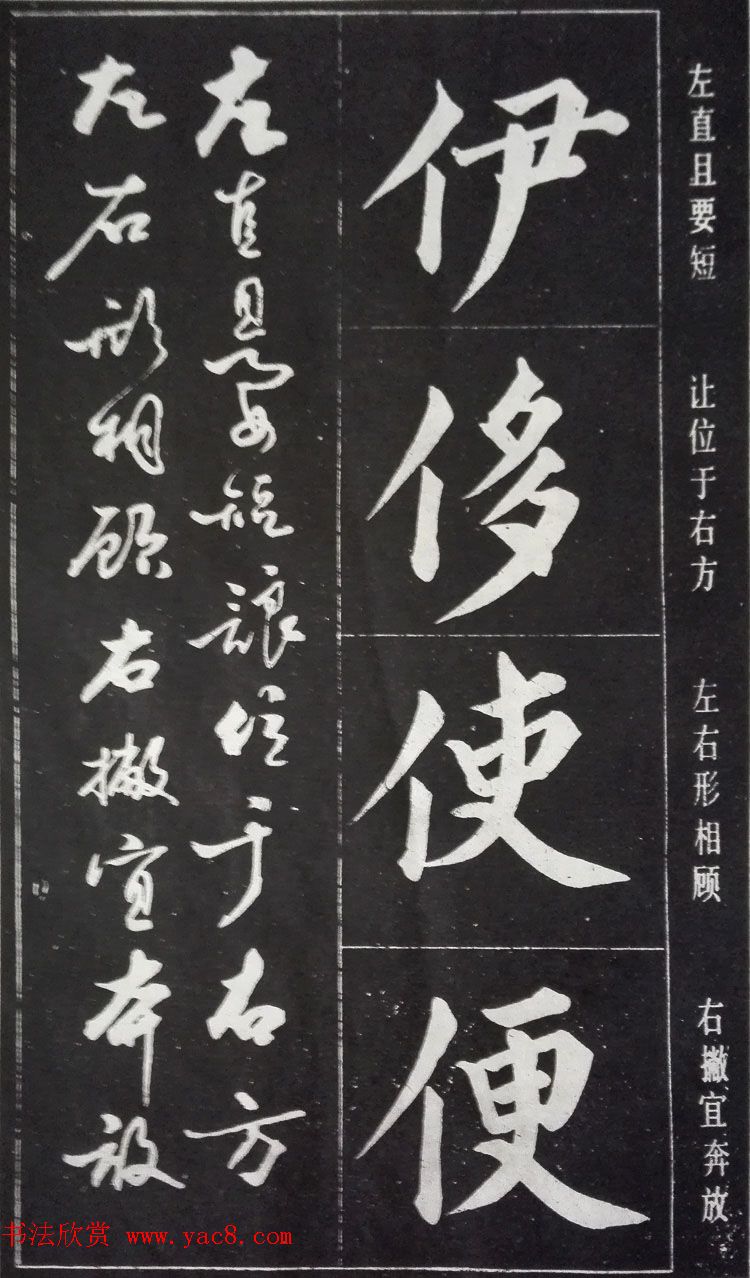 左直且要短 让位于右方 左右形相顾 右撇宜奔放
伊
侈
使
便
左直且要短讓位于右方
左右形相顾右撇宜奔放
书法欣赏 www.yac8.com